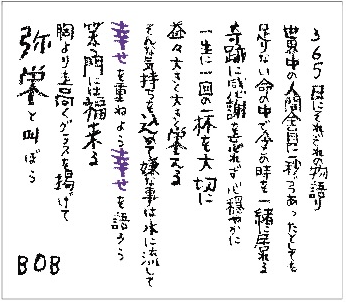 365日にそれぞれの物語り
世界中の人間全員に一秒づつあったとしても
足りない命の中で今この時を一緒に居れる
奇跡に感謝を忘れず心穏やかに
一生に一回の一杯を大切に
益々大きく大きく栄える
そんな気持ちを込めて嫌な事は水に流して
幸せを重ねよう幸せを語ろう
笑う門には福来る
胸よりも高くグラスを掲げて
弥栄と叫ぼう
BOB